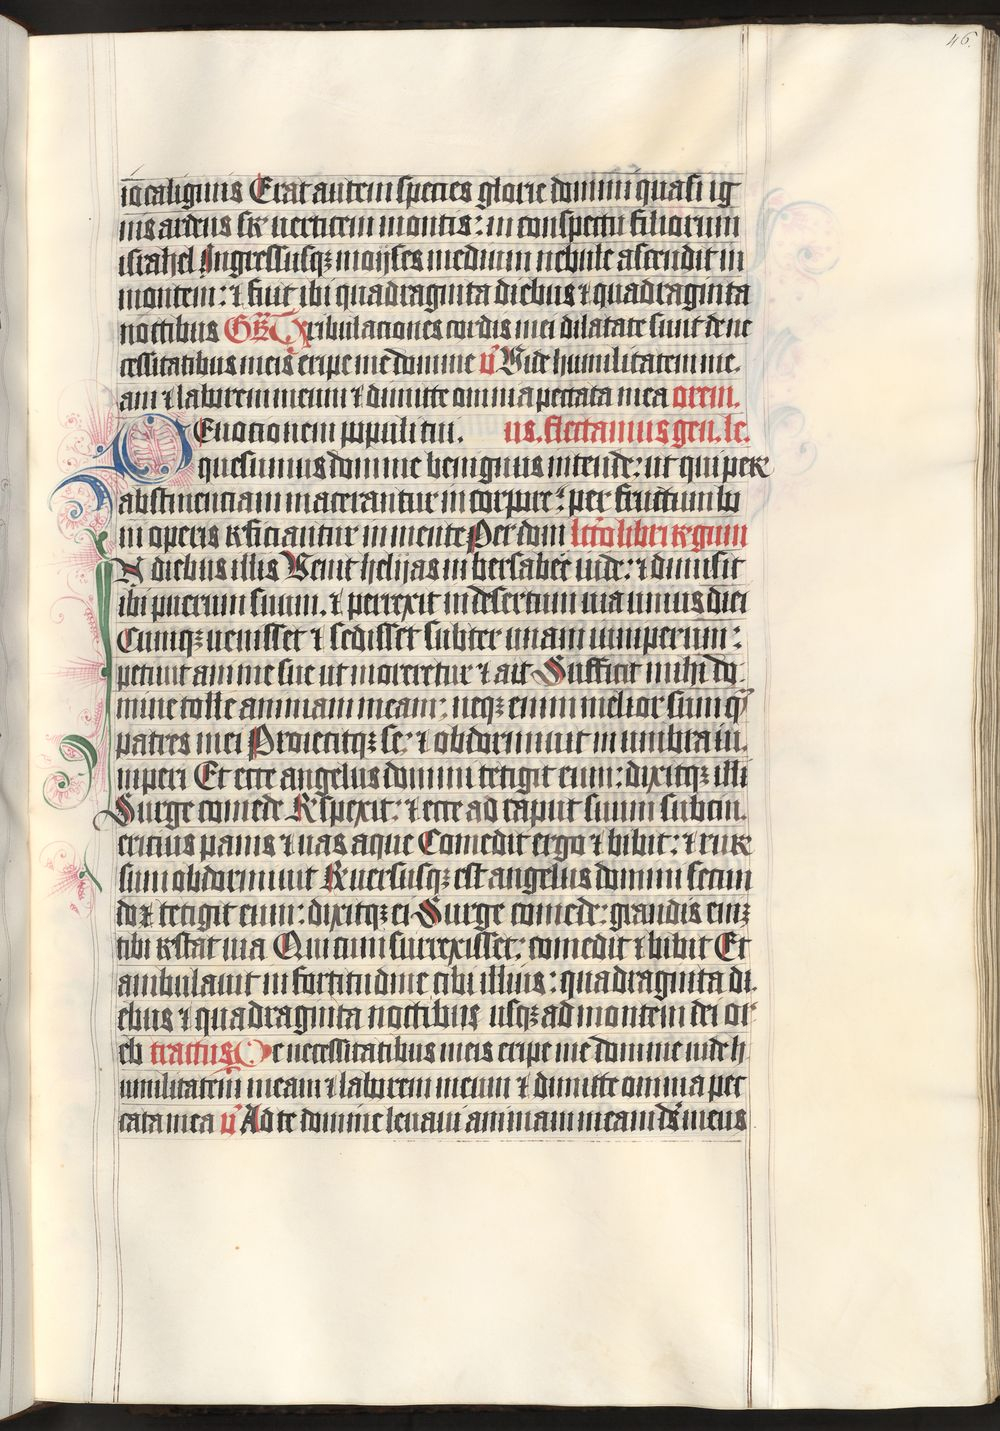 46.
io caliginis Erat autem species glorie domini quasi ig
nis ardens sr verticem montis: in conspectu filiorum
israhel Ingressusqꝫ moyses medium nebule ascendit in
montem: ⁊ fuit ibi quadraginta diebus ⁊ quadraginta
noctibus GR Tribulaciones cordis mei dilatate sunt de ne
cessitatibus meis eripe me domine v̄ Vide humilitatem me.
am ⁊ laborem meum ⁊ dimitte omnia peccata mea orem.
Deuocionem populi tui. us. flectamus gen. le.
quesumus domine benignus intende: ut qui per
abstinentiam macerantur in corpore: per fructum bo
ni operis reficiantur in mente Per dom lcō libri regum
IN diebus illis Venit helyas in bersabee iude: ⁊ dimisit
ibi puerum suum. ⁊ perrexit in desertum uia unius diei
Cumqꝫ uenisset ⁊ sedisset subter unam iuniperum:
petiuit anime sue ut moreretur ⁊ ait Sufficit mihi do.
mine tolle animam meam: neqꝫ enim melior sum qm̄
patres mei Proiecitqꝫ se: ⁊ obdormiuit in umbra iu.
niperi Et ecce angelus domini tetigit eum: dixitqꝫ illi
Surge comede Respexit: ⁊ ecce ad caput suum subcin.
ericius panis ⁊ uas aque Comedit ergo ⁊ bibit: ⁊ rur
sum obdormiuit Reuersusqꝫ est angelus domini secun
do ⁊ tetigit eum: dixitqꝫ ei Surge comede: grandis enī
tibi restat uia Qui cum surrexisset: comedit ⁊ bibit Et
ambulauit in fortitudine cibi illius: quadraginta di.
ebus ⁊ quadraginta noctibus usqꝫ ad montem dei or
eb tractus De necessitatibus meis eripe me domine uide h
umilitatem meam ⁊ laborem meum ⁊ dimitte omnia pec
cata mea v̄ Ad te domine leuaui animam meam ds̄ meus